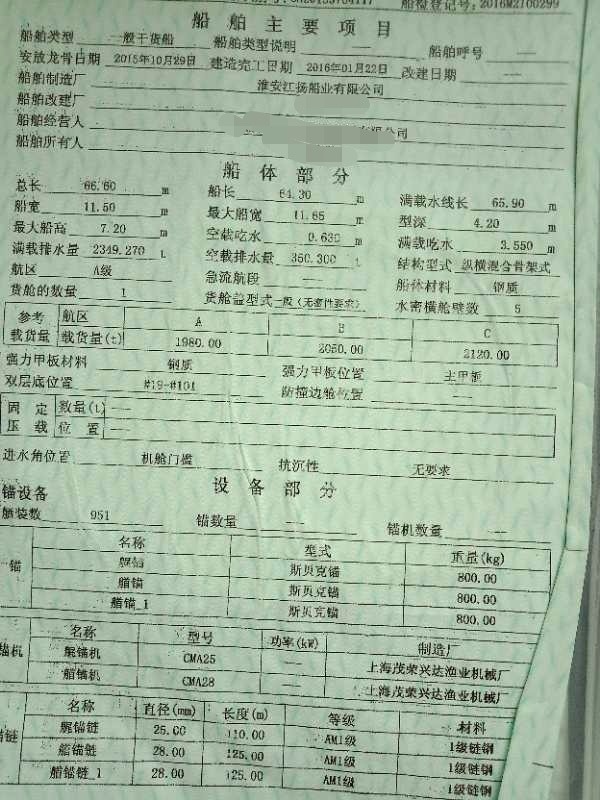 船检登记号: 2016M2100299
船舶主要项目
船舶类型 一般干货船 船舶类型说明 —— 船舶呼号 ——
安放龙骨日期 2015年10月29日 建造完工日期 2016年01月22日 改建日期 ——
船舶制造厂 淮安江扬船业有限公司
船舶改建厂 ——
船舶经营人 有限公司
船舶所有人
船体部分
总长 66.60 m 船长 64.30 m 满载水线长 65.90 m
船宽 11.50 m 最大船宽 11.65 m 型深 4.20 m
最大船高 7.20 m 空载吃水 0.630 m 满载吃水 3.550 m
满载排水量 2349.270 t 空载排水量 350.300 t 结构型式 纵横混合骨架式
航区 A级 急流航段 —— 船体材料 钢质
货舱的数量 1 货舱盖型式 一般(无密性要求) 水密横舱壁数 5
参考载货量 航区 A B C
载货量(t) 1980.00 2050.00 2120.00
强力甲板材料 钢质 强力甲板位置 主甲板
双层底位置 #19-#101 防撞边舱位置 ——
固定压载 数量(t) ——
位置 ——
进水角位置 机舱门槛 抗沉性 无要求
设备部分
锚设备
舾装数 951 锚数量 —— 锚机数量 ——
锚 名称 型式 重量(kg)
艉锚 斯贝克锚 800.00
艏锚 斯贝克锚 800.00
艏锚_1 斯贝克锚 800.00
锚机 名称 型号 功率(kW) 制造厂
艉锚机 CMA25 —— 上海茂荣兴达渔业机械厂
艏锚机 CMA28 —— 上海茂荣兴达渔业机械厂
锚链 名称 直径(mm) 长度(m) 等级 材料
艉锚链 25.00 110.00 AM1级 1级链钢
艏锚链 28.00 125.00 AM1级 1级链钢
艏锚链_1 28.00 125.00 AM1级 1级链钢